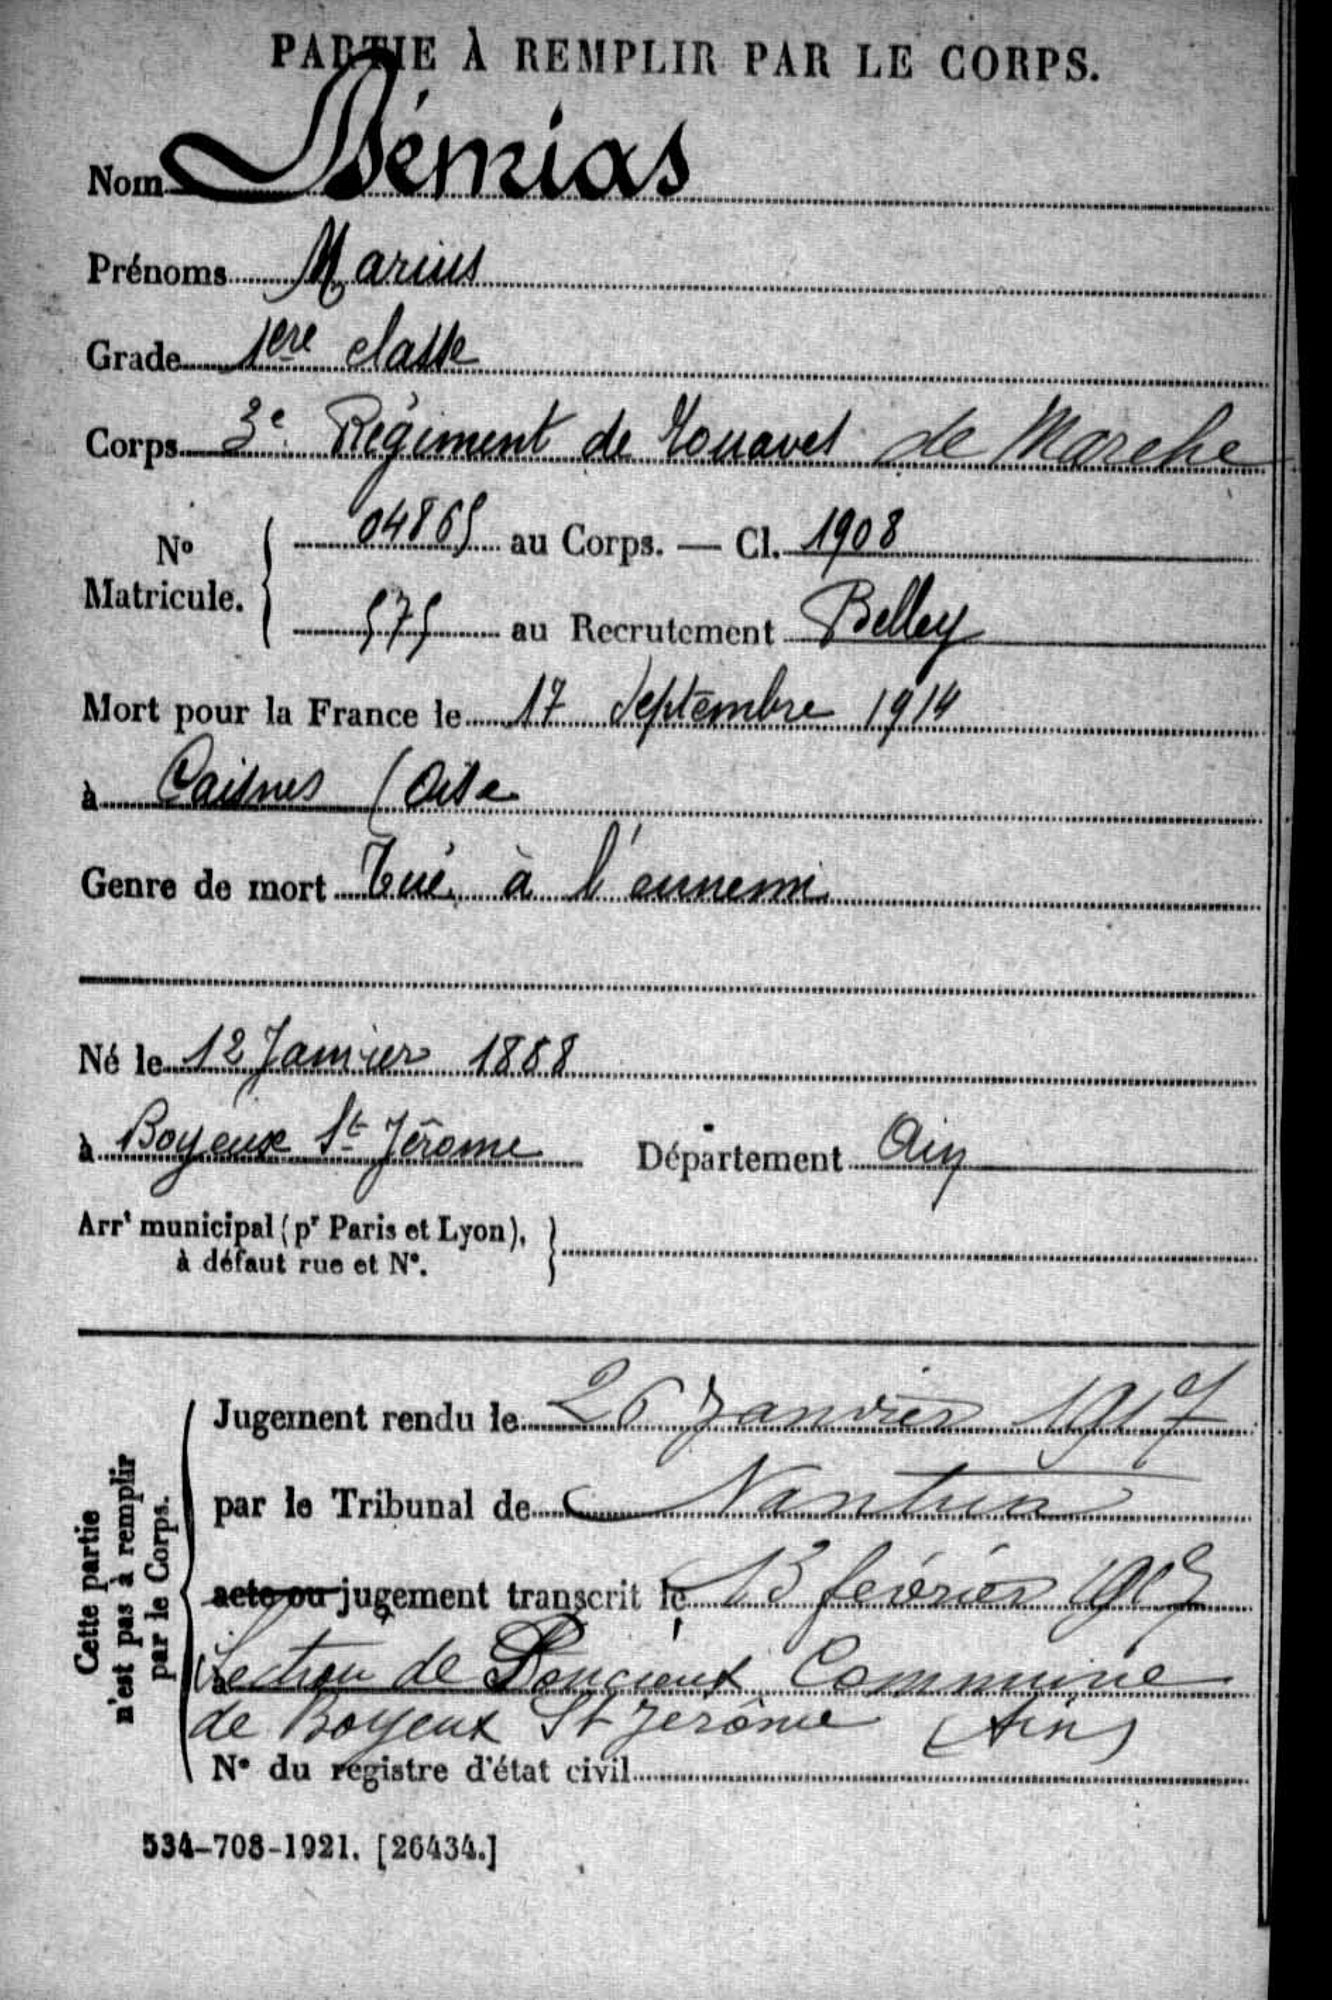 PARTIE À REMPLIR PAR LE CORPS.
Nom Démias
Prénoms Marius
Grade 1ère classe
Corps 3e Régiment de Zouaves de Marche
No Matricule. 04865 au Corps. — Cl. 1908
575 au Recrutement Belley
Mort pour la France le 17 Septembre 1914
à Caisnes (Oise
Genre de mort Tué à l'ennemi
Né le 12 Janvier 1888
à Boyeux St Jérome Département Ain
Arrt municipal (pr Paris et Lyon),
à défaut rue et No.
Cette partie
n'est pas à remplir
par le Corps.
Jugement rendu le 26 Janvier 1917
par le Tribunal de Nantua
acte ou jugement transcrit le 13 février 1917
à Section de Poncieux Commune
de Boyeux St Jérôme (Ain)
No du registre d'état civil
534-708-1921. [26434.]